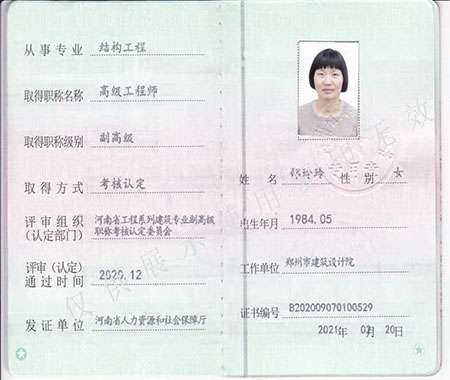 从事专业 结构工程
取得职称名称 高级工程师
取得职称级别 副高级
取得方式 考核认定
评审组织
(认定部门)
河南省工程系列建筑专业副高级
职称考核认定委员会
评审(认定)
通过时间
2020.12
发证单位 河南省人力资源和社会保障厅
姓名 玲 性别 女
出生年月 1984.05
工作单位 郑州市建筑设计院
证书编号 B202009070100529
2021年 02月20日